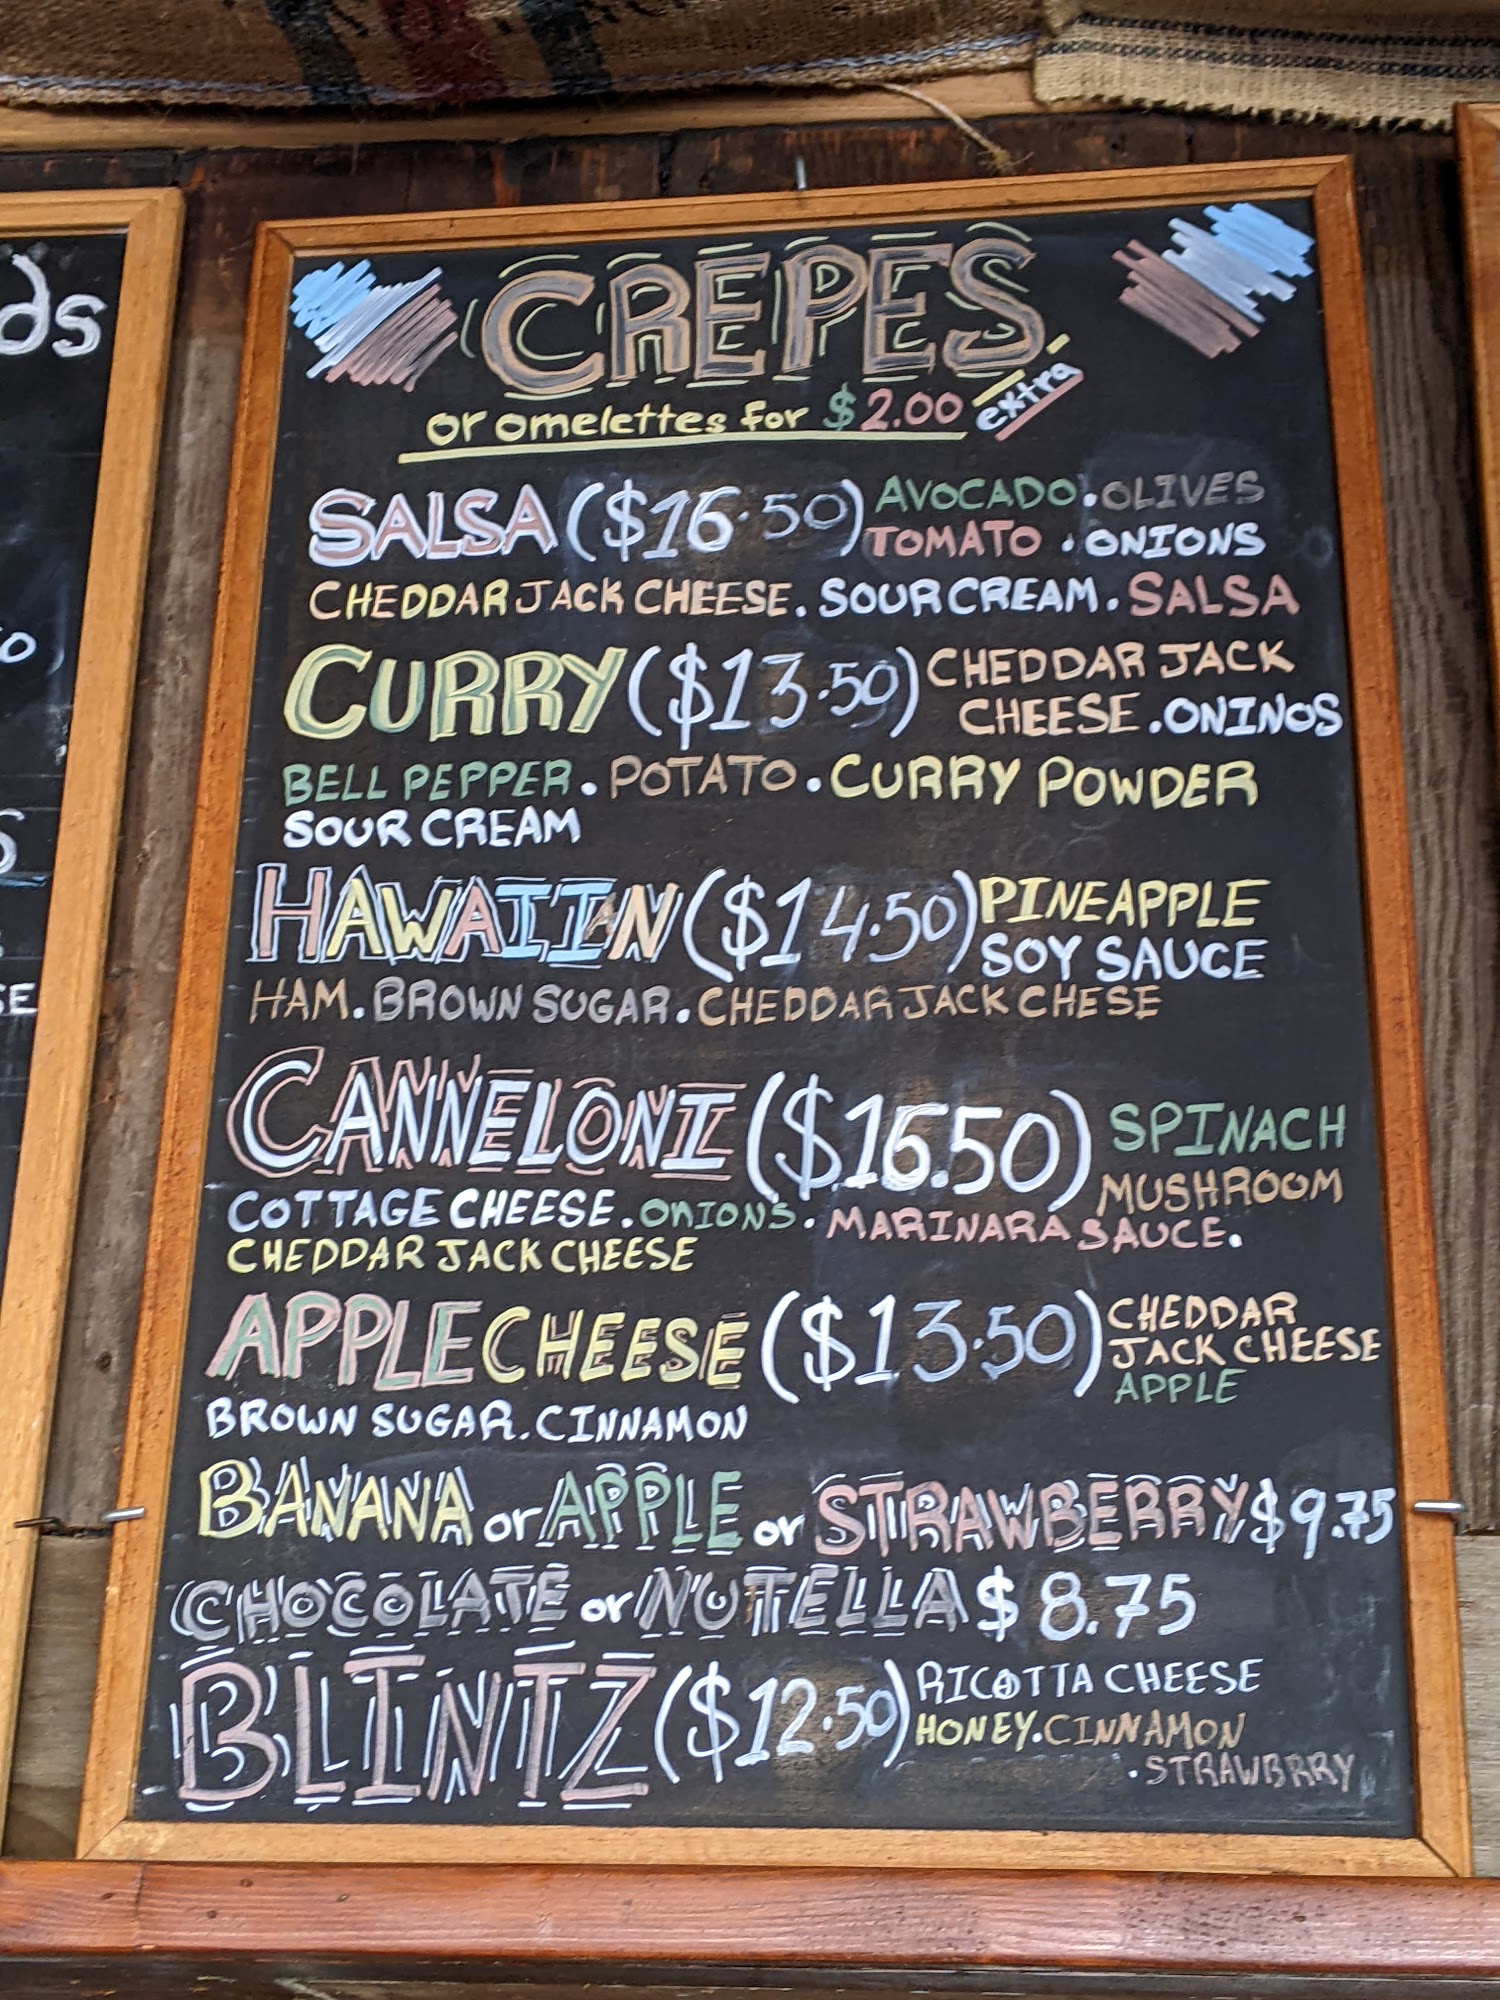 CREPES
or omelettes for $2.00 extra
SALSA ($16.50) AVOCADO . OLIVES
TOMATO . ONIONS
CHEDDAR JACK CHEESE . SOUR CREAM . SALSA
CURRY ($13.50) CHEDDAR JACK
CHEESE . ONINOS
BELL PEPPER . POTATO . CURRY POWDER
SOUR CREAM
HAWAIIAN ($14.50) PINEAPPLE
SOY SAUCE
HAM . BROWN SUGAR . CHEDDAR JACK CHESE
CANNELONI ($16.50) SPINACH
MUSHROOM
COTTAGE CHEESE . ONIONS . MARINARA SAUCE .
CHEDDAR JACK CHEESE
APPLE CHEESE ($13.50) CHEDDAR
JACK CHEESE
APPLE
BROWN SUGAR . CINNAMON
BANANA or APPLE or STRAWBERRY $9.75
CHOCOLATE or NUTELLA $8.75
BLINTZ ($12.50) RICOTTA CHEESE
HONEY . CINNAMON
. STRAWBRRY